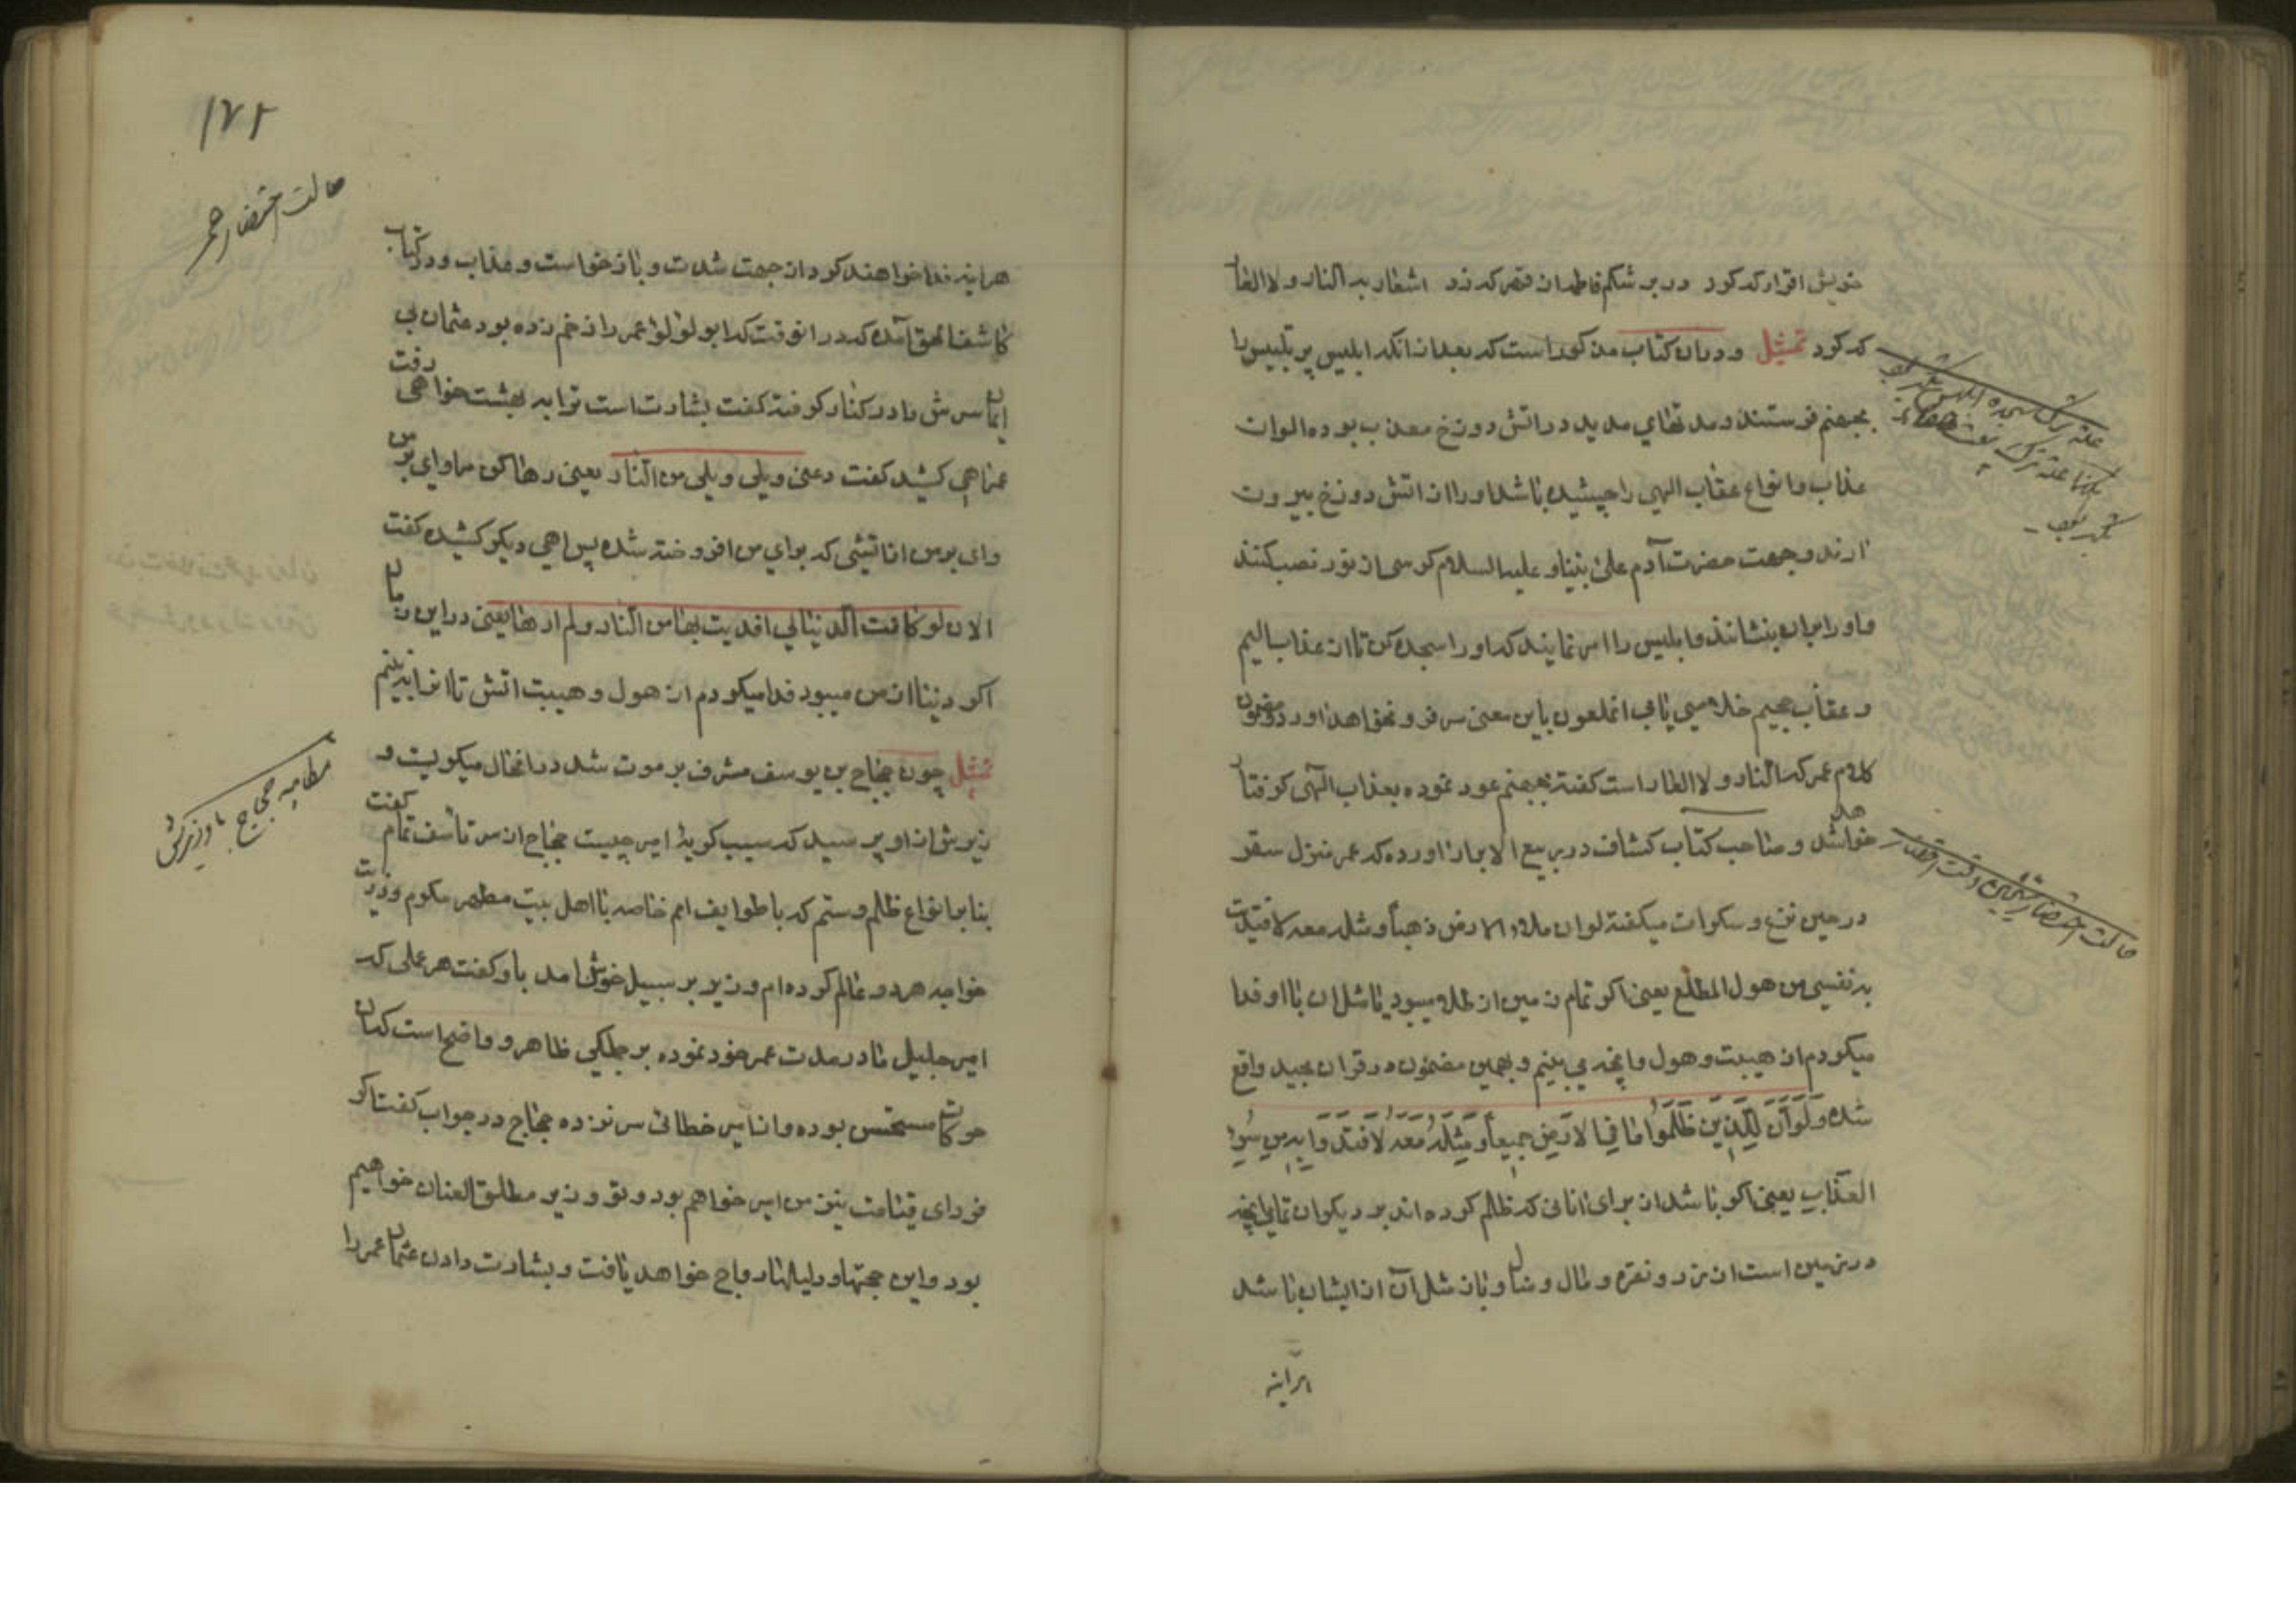 خویش اقرار که کرد در بر شکم فاطمه از قهر که زد اشعار به النار و لا العار
که کرد تمثیل و در ان کتاب مذکور است که بعد از انکه ابلیس پر تلبیس را
بجهنم فرستند و مدتهای مدید در اتش دوزخ معذب بوده الوان
عذاب و انواع عقاب الهی را چشیده باشد او را از اتش دوزخ بیرون
ارند و جهت حضرت آدم علی نبینا و علیه السلام کرسی از نور نصب کنند
و او را بر ان بنشانند و ابلیس را امر نمایند که او را سجده کن تا از عذاب الیم
و عقاب جحیم خلاصی یابی انملعون باین معنی سر فرو نخواهد اورد و مضمون
کلام عمر که النار و لا العار است کفته بجهنم عود نموده بعذاب الهی کرفتار
خواهد شد و صاحب کتاب کشاف در ربیع الابرار اورده که عمر منزل سقر
در حین نزع و سکرات میکفته لو ان ملاء الارض ذهباً و مثله معه لافتدیت
به نفسی من هول المطلع یعنی اکر تمام زمین از طلا میبود یا مثل ان با او فدا
میکردم از هیبت و هول و انچه می بینم و بهمین مضمون در قران مجید واقع
شده وَلَوْ اَنَّ لِلَّذینَ ظَلَمُوا ما فِی الاَرْضِ جَمیعاً وَ مِثْلَهُ مَعَهُ لاَفْتَدَوْا بِهِ مِنْ سُوءِ
العَذابِ یعنی اکر باشد از برای انانی که ظلم کرده اند بر دیکران تمامی انچه
در زمین است از زر و نقره و مال و منال و باز مثل آن از ایشان باشد
هراینه
حالت احتضار شیخین وقت احتضار
۱۷۲
هراینه فدا خواهند کرد از جهت شدت و باز خواست و عذاب و در کتاب
کاشف الحق آمده که در انوقت که ابو لولو عمر را زخم زده بود عثمان بی
ایمان سرش را در کنار کرفته کفت بشارت است ترا به بهشت خواهی رفت
عمر اهی کشید کفت دعنی ویلی ویلی من النار یعنی رها کن مرا وای بر من
وای بر من از اتشی که برای من افروخته شده پس اهی دیکر کشیده کفت
الان لو کانت الدنیا لی افدیت بها من النار و لم ارها یعنی در این زمان
اکر دنیا از من میبود فدا میکردم از هول و هیبت اتش تا انرا نبینم
تمثیل چون حجاج بن یوسف مشرف بر موت شد در انحال میکریست و
زیرش از او پرسید که سبب کریهٔ امیر چیست حجاج از سر تاسف تمام کفت
بنا بر انواع ظلم و ستم که با طوایف امم خاصه با اهل بیت مطهر مکرم و ذریت
خواجه هر دو عالم کرده ام وزیر بر سبیل خوش امد باو کفت هر عملی که
امیر جلیل ما در مدت عمر خود نموده بر جملکی ظاهر و واضح است که ان
حرکات مستحسن بوده و از امیر خطائی سر نزده حجاج در جواب کفت اکر
فردای قیامت نیز من امیر خواهم بود و تو وزیر مطلق العنان خواهیم
بود و این حجتها و دلیلها رواج خواهد یافت و بشارت دادن عثمان عمر را
حالت احتضار عمر
مطایبه حجاج با وزیرش